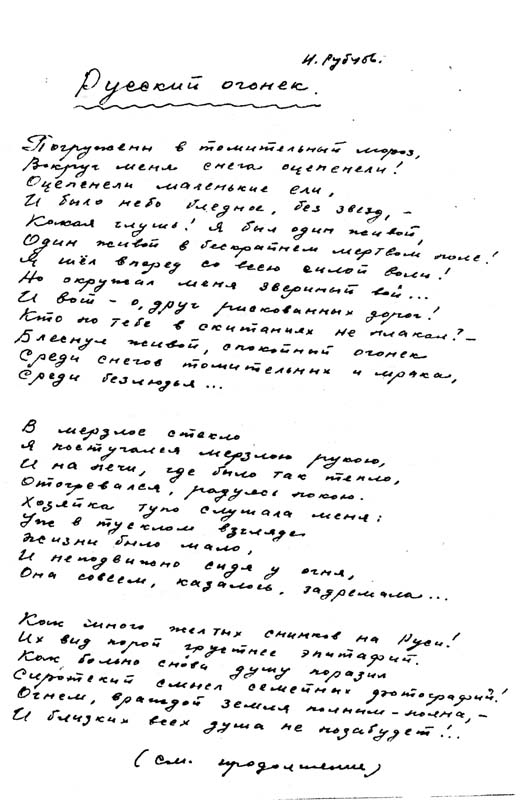 Н. Рубцов.
Русский огонек.
Погружены в томительный мороз,
Вокруг меня снега оцепенели!
Оцепенели маленькие ели,
И было небо бледное, без звезд, –
Какая глушь! Я был один живой,
Один живой в бескрайнем мертвом поле!
Я шёл вперед со всею силой воли!
Но окружал меня звериный вой...
И вот – о, друг рискованных дорог!
Кто по тебе в скитаниях не плакал? –
Блеснул живой, спокойный огонек
Среди снегов томительных и мрака,
Среди безлюдья...
В мерзлое стекло
Я постучался мерзлою рукою,
И на печи, где было так тепло,
Отогревался, радуясь покою.
Хозяйка тупо слушала меня:
Уже в тусклом взгляде
Жизни было мало,
И неподвижно сидя у огня,
Она совсем, казалось, задремала...
Как много желтых снимков на Руси!
Их вид порой грустнее эпитафий.
Как больно снова душу поразил
Сиротский смысл семейных фотографий!
Огнем, враждой земля полным-полна, –
И близких всех душа не позабудет!..
(см. продолжение)